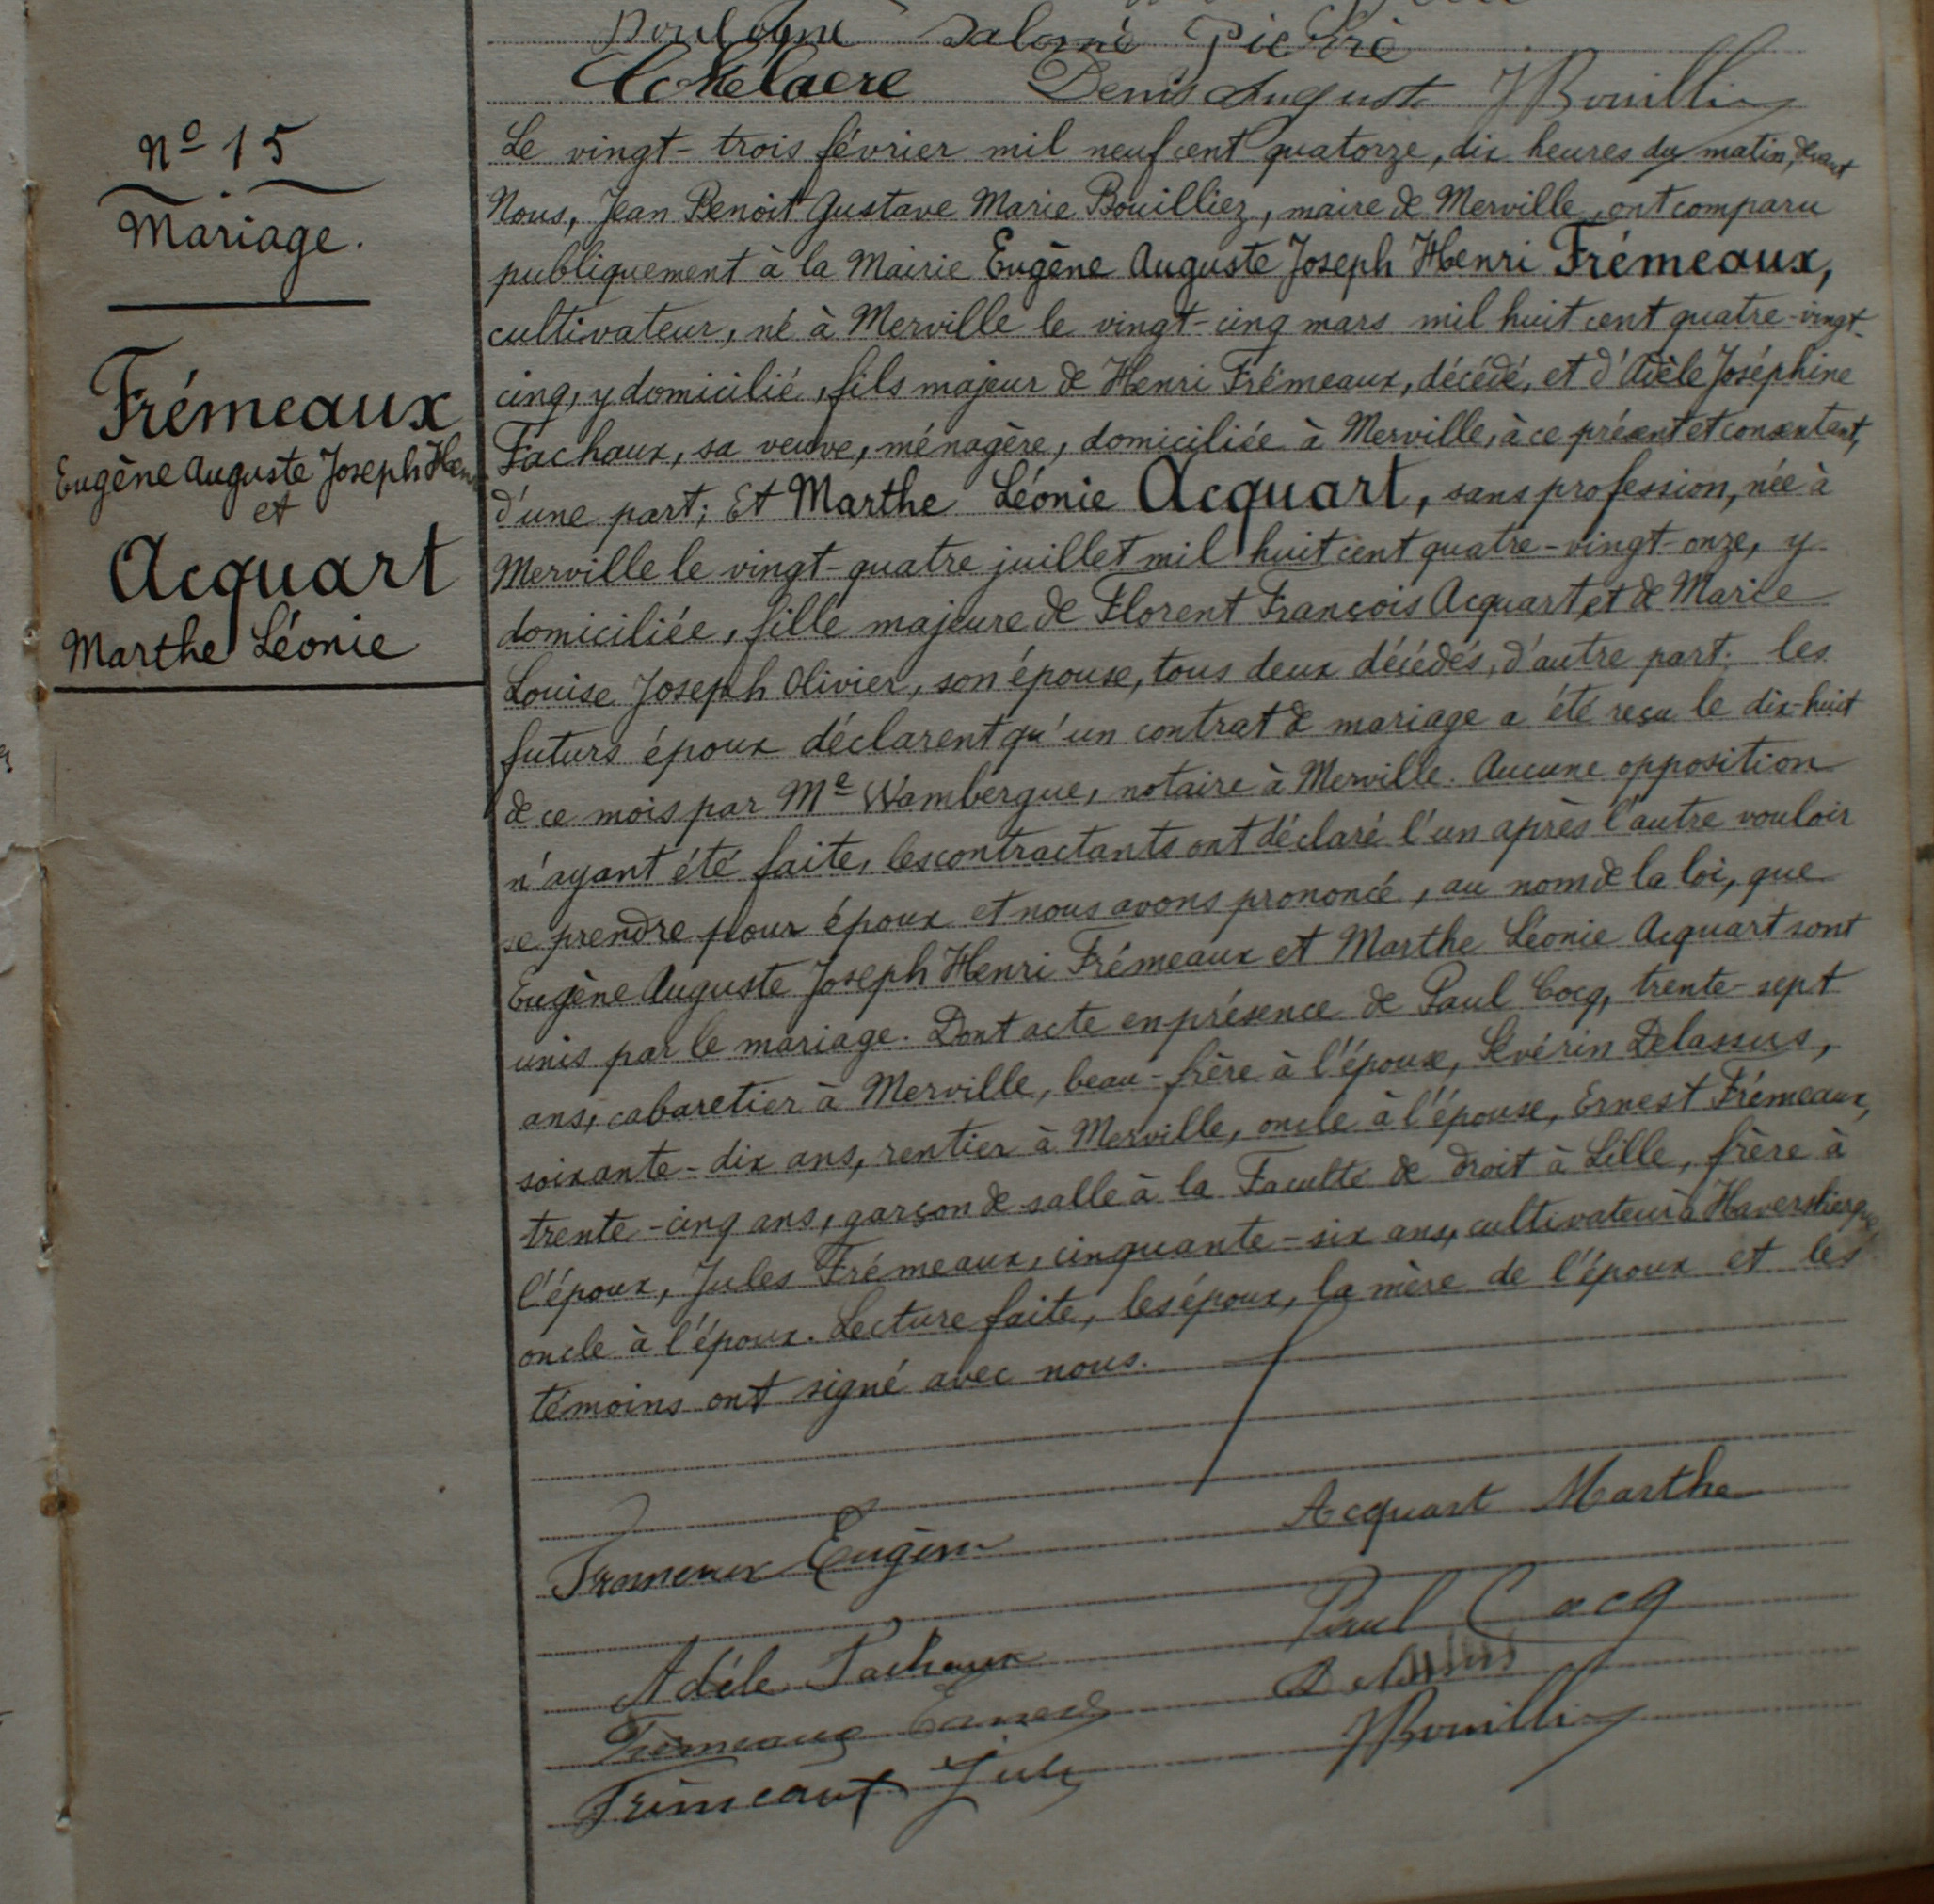 Boulogne Salomé Pierre
Denis August JBouilliez
Nº 15
Mariage.
Frémeaux
Eugène Auguste Joseph Henri
et
Acquart
Marthe Léonie
Le vingt-trois février mil neuf cent quatorze, dix heures du matin, devant
Nous, Jean Benoit Gustave Marie Bouilliez, maire de Merville, ont comparu
publiquement à la Mairie Eugène Auguste Joseph Henri Frémeaux,
cultivateur, né à Merville le vingt-cinq mars mil huit cent quatre-vingt-
cinq, y domicilié, fils majeur de Henri Frémeaux, décédé, et d'Adèle Joséphine
Fachaux, sa veuve, ménagère, domiciliée à Merville, à ce présent et consentant,
d'une part; Et Marthe Léonie Acquart, sans profession, née à
Merville le vingt-quatre juillet mil huit cent quatre-vingt-onze, y
domiciliée, fille majeure de Florent François Acquart et de Marie
Louise Joseph Olivier, son épouse, tous deux décédés, d'autre part. les
futurs époux déclarent qu'un contrat de mariage a été reçu le dix-huit
de ce mois par Me Wambergue, notaire à Merville. Aucune opposition
n'ayant été faite, les contractants ont déclaré l'un après l'autre vouloir
se prendre pour époux et nous avons prononcé, au nom de la loi, que
Eugène Auguste Joseph Henri Frémeaux et Marthe Léonie Acquart sont
unis par le mariage. Dont acte en présence de Paul Cocq, trente-sept
ans, cabaretier à Merville, beau-frère à l'époux, Sévérin Delassus,
soixante-dix ans, rentier à Merville, oncle à l'épouse, Ernest Frémeaux,
trente-cinq ans, garçon de salle à la Faculté de droit à Lille, frère à
l'époux, Jules Frémeaux, cinquante-six ans, cultivateur à Haverskerque
oncle à l'époux. Lecture faite, les époux, la mère de l'époux et les
témoins ont signé avec nous.
Fremeaux Eugène Acquart Marthe
Adéle Fachaux Paul Cocq
Frémeaux Ernest Delassus
Frémeaux Jules JBouilliez